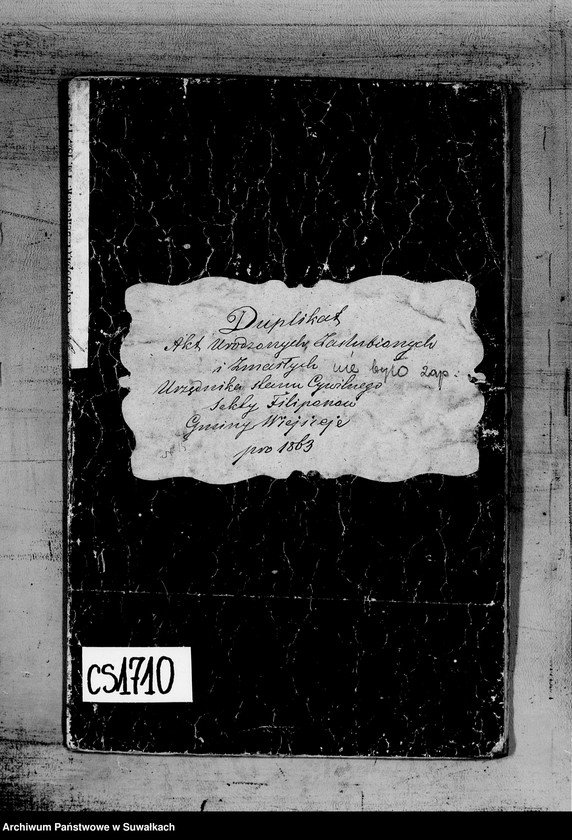 Duplikat
Akt Urodzonych, Zaslubionych
i Zmarłych nie było zap.
Urzędnika Stanu Cywilnego
Sekty Filiponow
Gminy Wiejsieje
pro 1863
CS1710
Archiwum Państwowe w Suwałkach